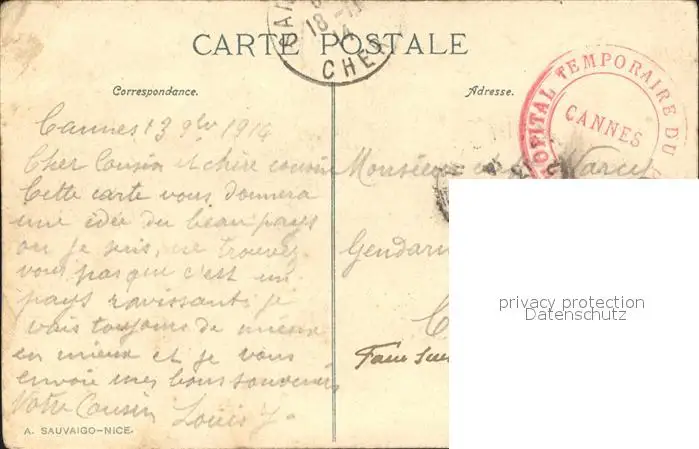 CARTE POSTALE
18 -11
14
CHER
HOPITAL TEMPORAIRE DU
CANNES
Correspondance.
Adresse.
Cannes 13 9bre 1914
Cher Cousin et chère cousine
Cette carte vous donnera
une idée du beau pays
ou je suis, ne trouvez
vous pas que c'est un
pays ravissant; je
vais toujours de mieux
en mieux et je vous
envoie mes bons souvenirs
Votre Cousin Louis J.
A. SAUVAIGO-NICE.
Monsieur
Gendarm
privacy protection
Datenschutz